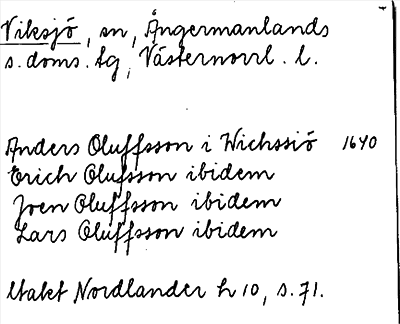 Viksjö, sn, Ångermanlands
s. doms. tg, Västernorrl. l.
Anders Oluffsson i Wichssiö 1640
Erich Olufsson ibidem
Joen Oluffsson ibidem
Lars Oluffsson ibidem
Utakt Nordlander h 10, s. 71.